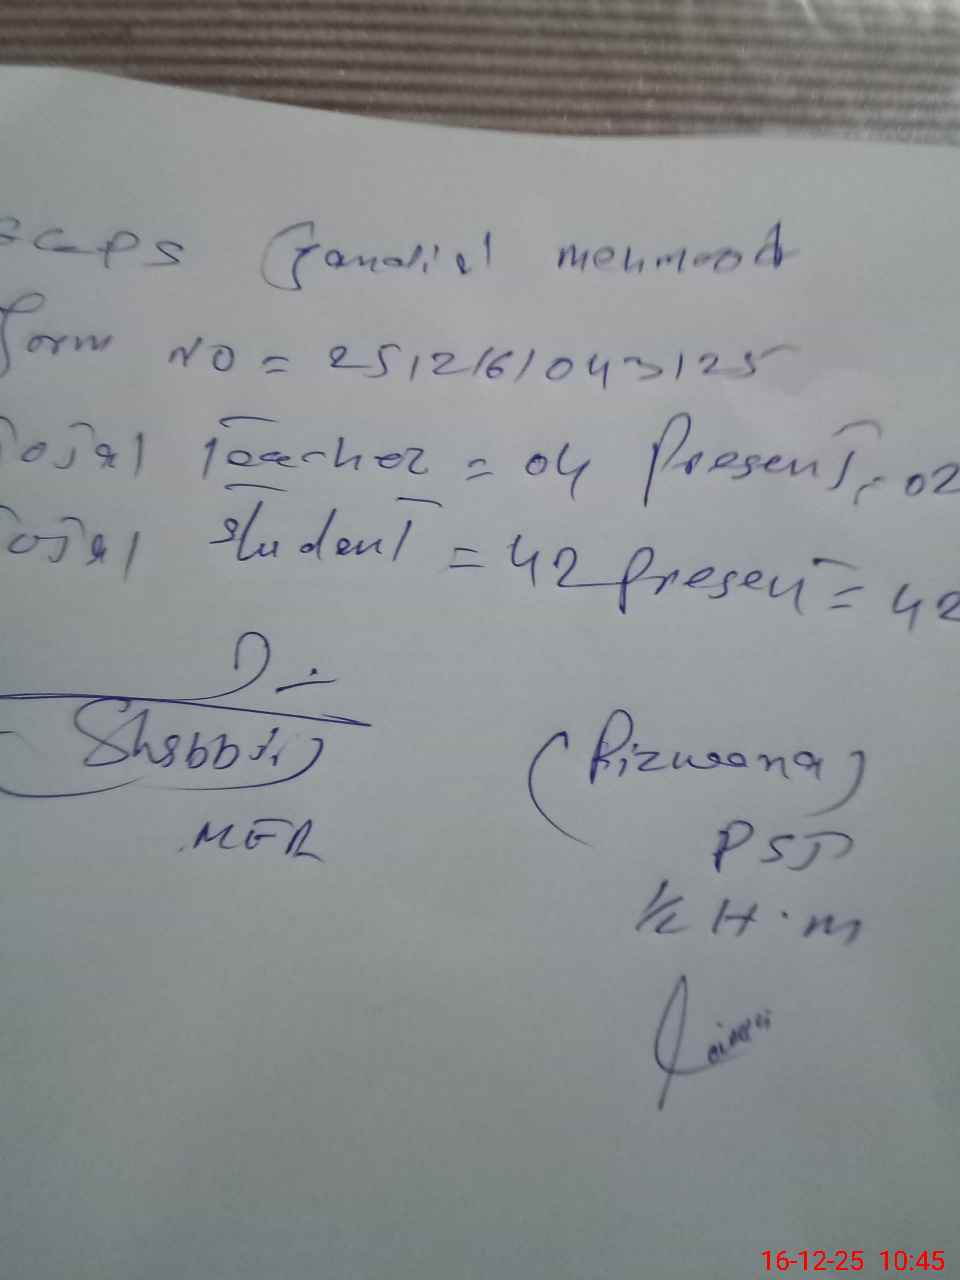 GGPS Gandial mehmood
form NO = 2512161043125
Total Teacher = 04 Present = 02
Total student = 42 Present = 42
(Shabbir)
MER
(Rizwana)
PST
I/C H.m
16-12-25 10:45